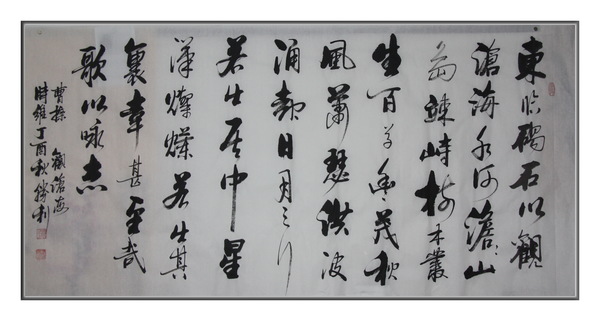 東临碣石以觀
滄海水何澹〻山
島竦峙树木叢
生百草丰茂秋
風萧瑟洪波
涌起日月之行
若出其中星
漢燦爛若出其
裏幸甚至哉
歌以咏志
曹操 觀滄海
時維丁酉秋勝利